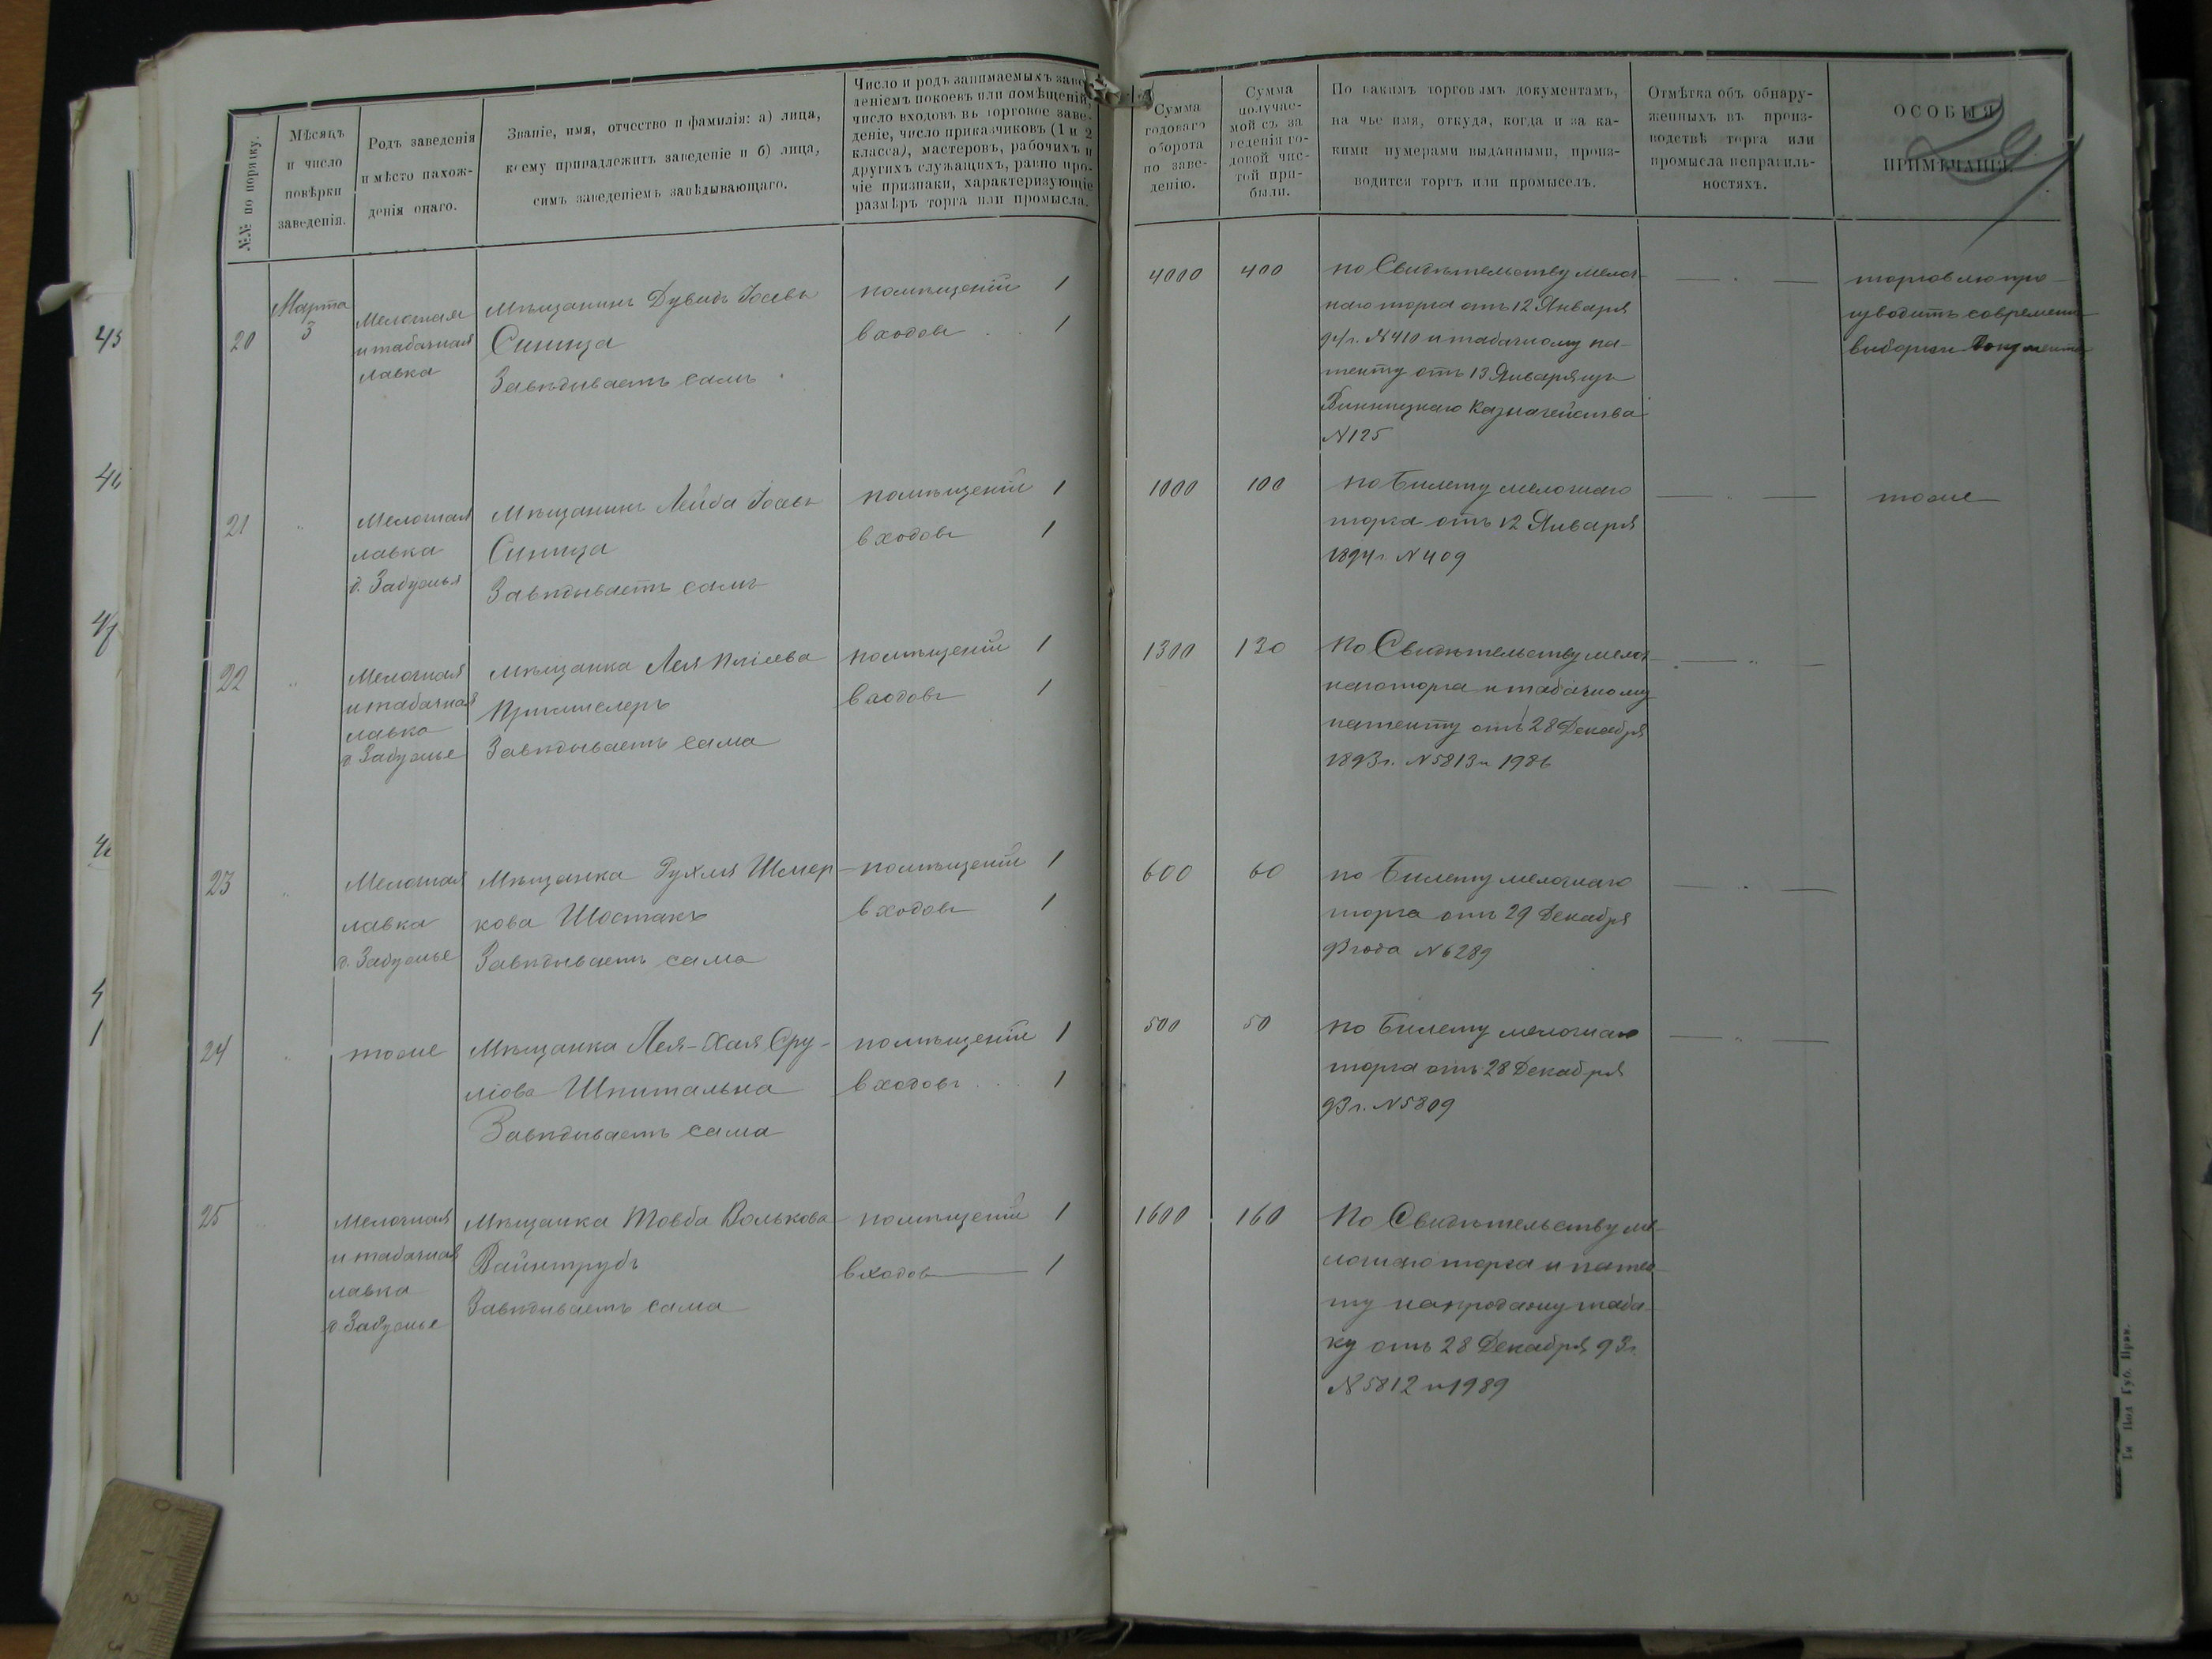 №№ по порядку.
Мѣсяцъ
и число
повѣрки
заведенія.
Родъ заведенія
и мѣсто нахож-
денія онаго.
Званіе, имя, отчество и фамилія: а) лица,
коему принадлежитъ заведеніе и б) лица,
симъ заведеніемъ завѣдывающаго.
Число и родъ занимаемыхъ заве-
деніемъ покоевъ или помѣщеній,
число входовъ въ торговое заве-
деніе, число приказчиковъ (1 и 2
класса), мастеровъ, рабочихъ и
другихъ служащихъ, равно про-
чіе признаки, характеризующіе
размѣръ торга или промысла.
Сумма
годоваго
оборота
по заве-
денію.
Сумма
получае-
мой съ за
веденія го-
довой чис-
той при-
были.
По какимъ торговымъ документамъ,
на чье имя, откуда, когда и за ка-
кими нумерами выданными, произ-
водится торгъ или промыселъ.
Отмѣтка объ обнару-
женныхъ въ произ-
водствѣ торга или
промысла неправиль-
ностяхъ.
ОСОБЫЯ
ПРИМѢЧАНІЯ.
29
20
Марта
3
Мелочная
и табачная
лавка
Мѣщанинъ Дувидъ Іосевъ
Синица
Завѣдываетъ самъ
помѣщеній 1
входовъ 1
4000
400
по Свидѣтельству мелоч-
наго торга отъ 12 Января
94 г. №410 и табачному па-
тенту отъ 13 Января изъ
Винницкаго Казначейства
№125
торговлю про-
изводитъ со времени
выборки документа
21
Мелочная
лавка
д. Забужья
Мѣщанинъ Лейба Іосевъ
Синица
Завѣдываетъ самъ
помѣщеній 1
входовъ 1
1000
100
по Билету мелочнаго
торга отъ 12 Января
1894 г. №409
тоже
22
Мелочная
и табачная
лавка
д. Забужье
Мѣщанка Лея
Завѣдываетъ сама
помѣщеній 1
входовъ 1
1300
130
По Свидѣтельству мелоч-
наго торга и табачному
патенту отъ 28 Декабря
1893 г. №5813 и 1986
23
Мелочная
лавка
д. Забужье
Мѣщанка Рухля Шмер-
кова Шостакъ
Завѣдываетъ сама
помѣщеній 1
входовъ 1
600
60
по Билету мелочнаго
торга отъ 29 Декабря
93 года №6289
24
тоже
Мѣщанка Лея-Хая Сру-
ліова Шпитальна
Завѣдываетъ сама
помѣщеній 1
входовъ 1
500
50
по Билету мелочнаго
торга отъ 28 Декабря
93 г. №5809
25
Мелочная
и табачная
лавка
д. Забужье
Мѣщанка Товба Волькова
Вайнтрубъ
Завѣдываетъ сама
помѣщеній 1
входовъ 1
1600
160
По Свидѣтельству ме-
лочнаго торга и патен-
ту на продажу таба-
ку отъ 28 Декабря 93 г.
№5812 и 1989
45
Ти Под Губ. Прав.